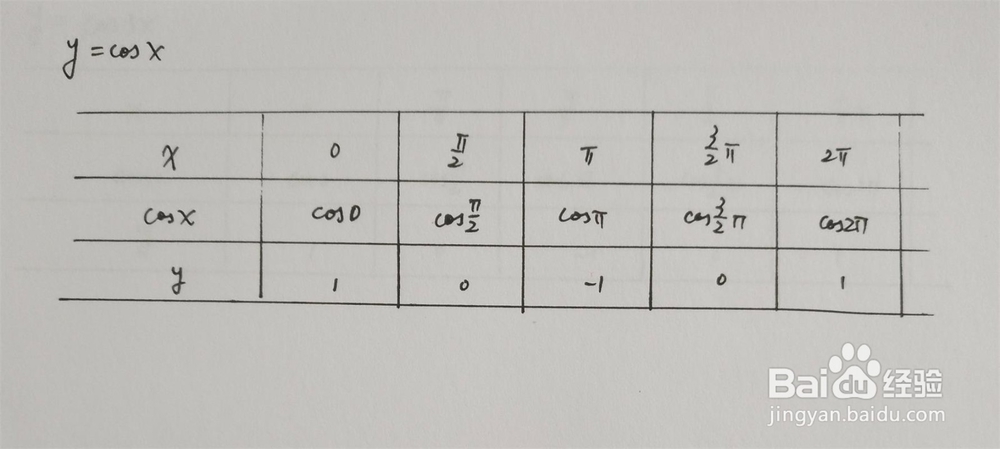 y = cos x
x 0 π/2 π 3/2 π 2π
cos x cos 0 cos π/2 cos π cos 3/2 π cos 2π
y 1 0 -1 0 1
Baidu 经验
jingyan.baidu.com